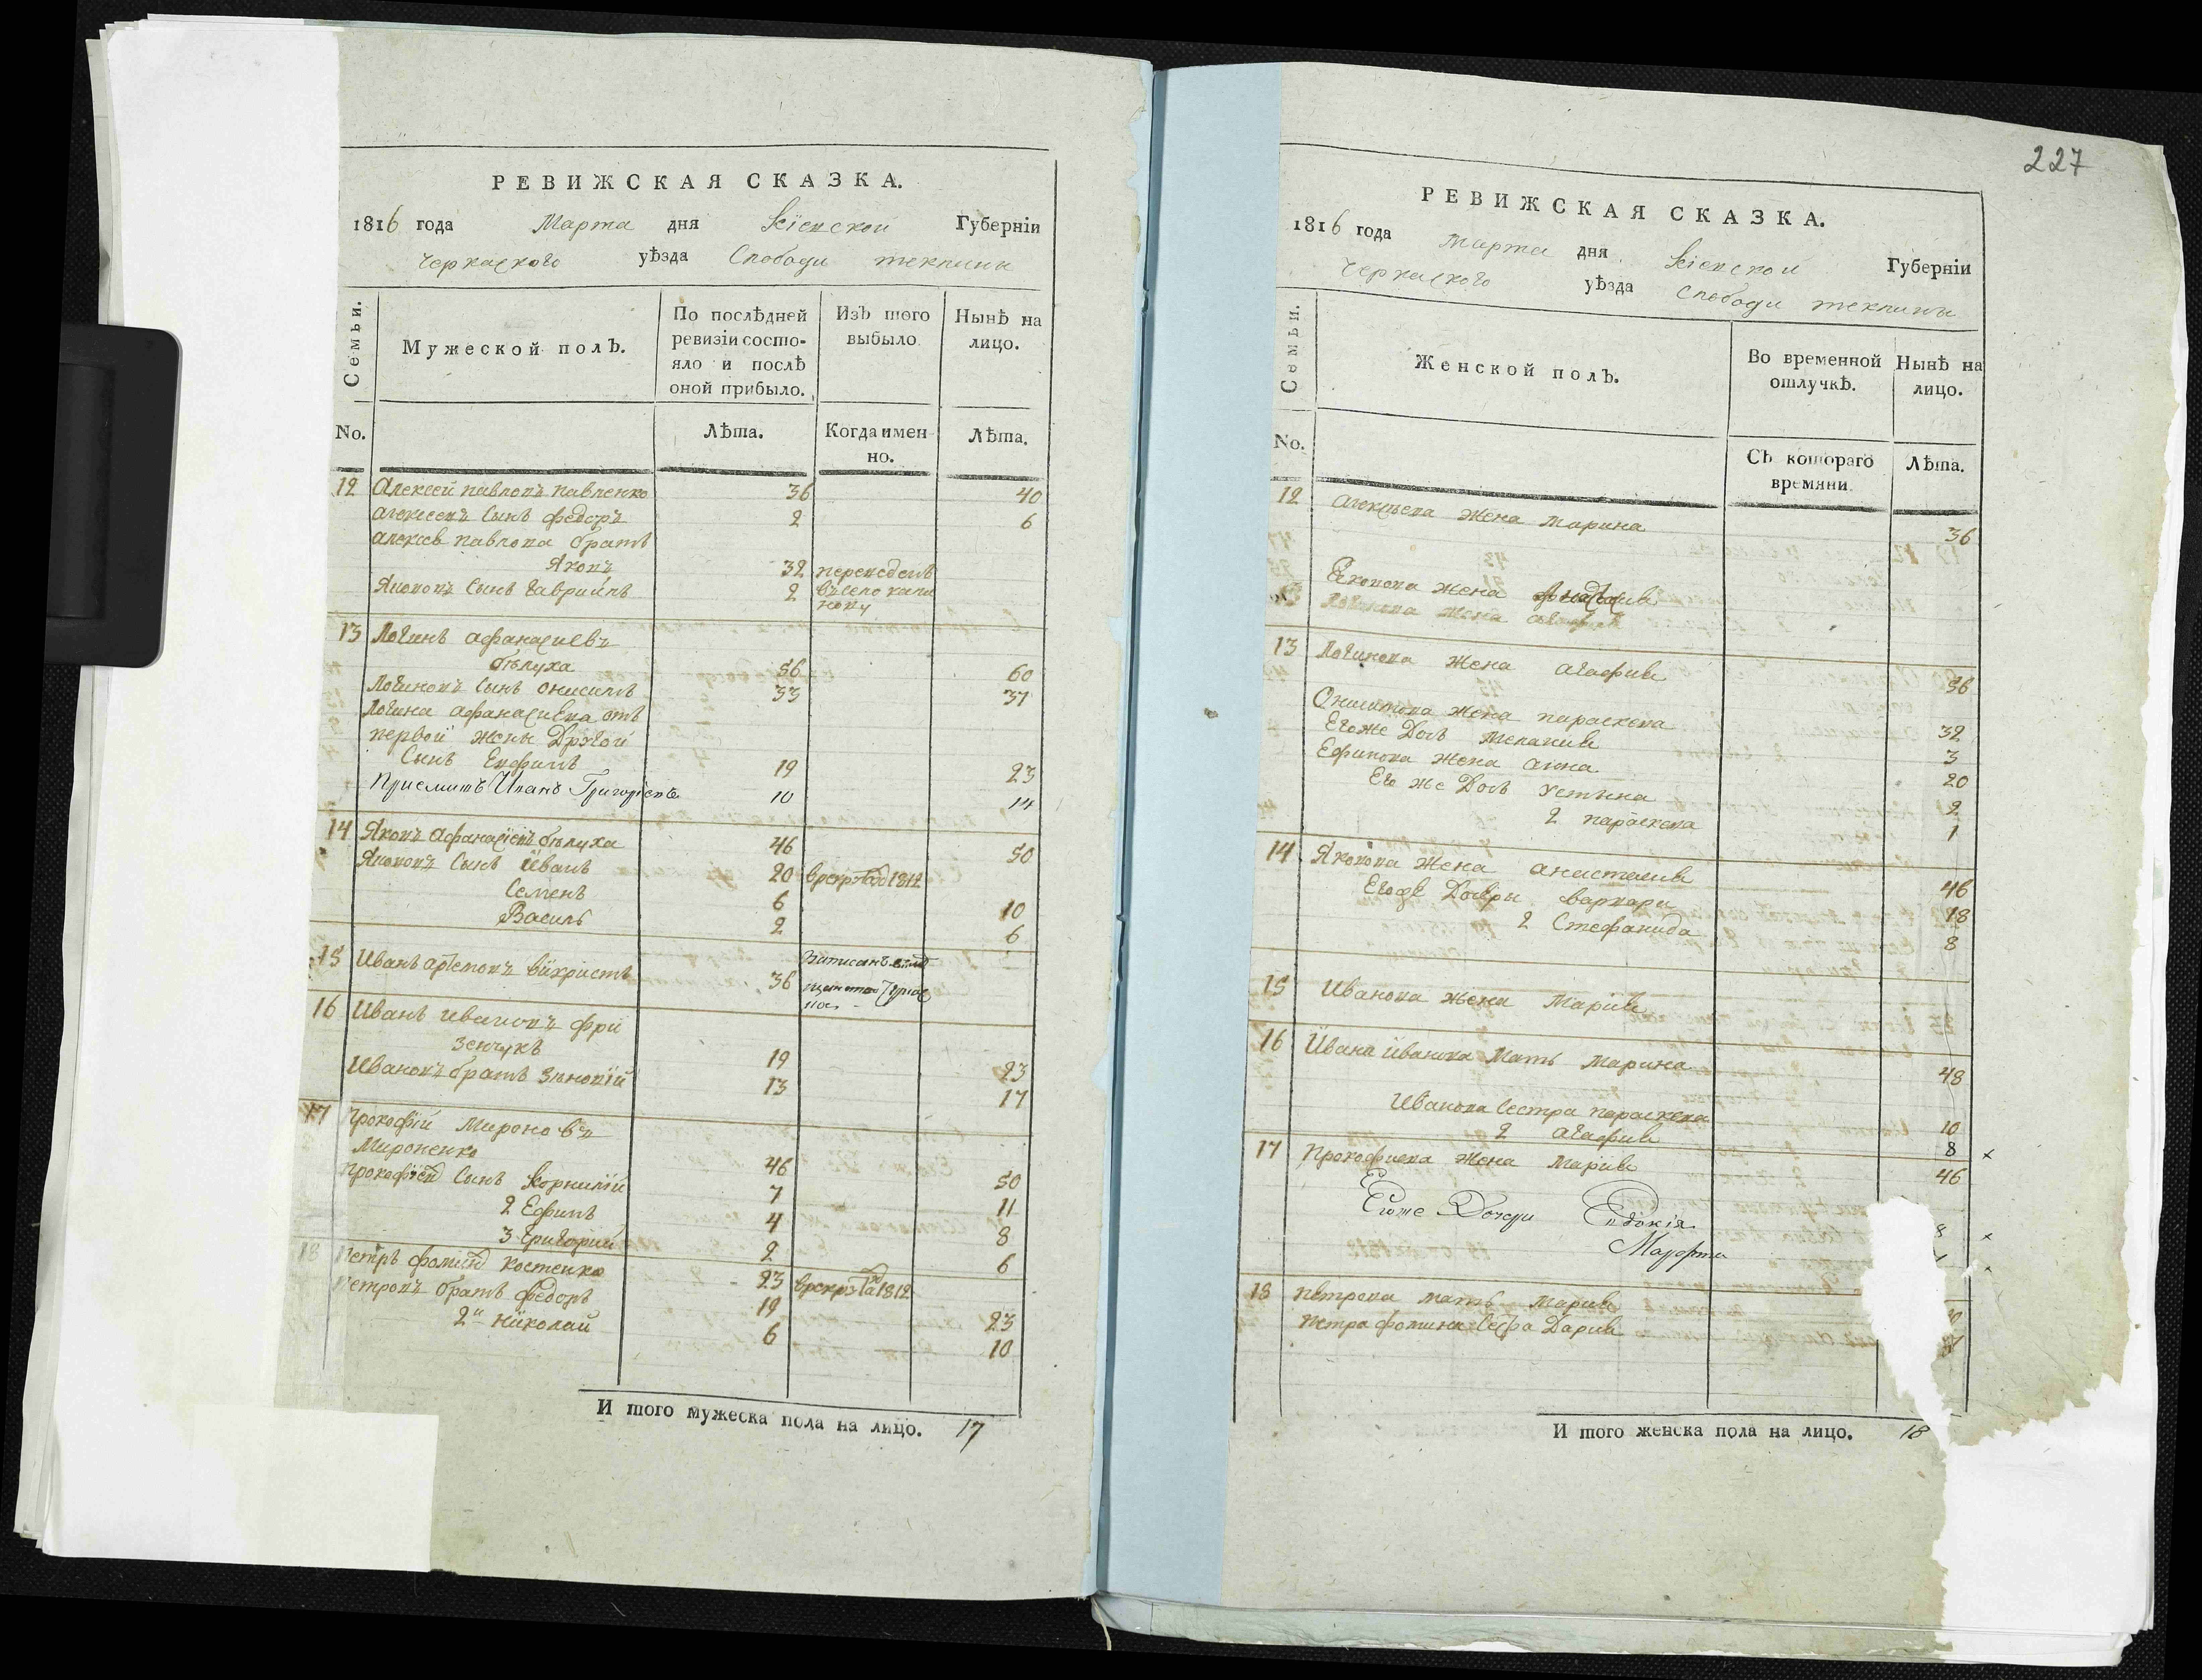 РЕВИЖСКАЯ СКАЗКА.
1816 года Марта дня Кіевской Губерніи
Черкаского уѣзда Слободы теклины
Семьи.
Мужеской полъ.
По послѣдней ревизіи состояло и послѣ оной прибыло.
Изъ того выбыло
Нынѣ на лицо.
No.
Лѣта.
Когда именно.
Лѣта.
12 Алексей павловъ павленко 36 40
алексеевъ Сынъ федоръ 2 6
алексея павлова братъ
Яковъ 32 переведенъ
Якововъ Сынъ Гавриилъ 2 въ село
13 Логинъ афанасиевъ
бѣлуха 56 60
Логиновъ Сынъ онисимъ 33 37
Логина афанасиева отъ
первой жены Другой
Сынъ Ефимъ 19 23
Приемишъ Иванъ Григоріевъ 10 14
14 Яковъ афанасіевъ бѣлуха 46 50
Якововъ Сынъ иванъ 20 врекруты 1812
Семенъ 6 10
Василь 2 6
15 Иванъ артемовъ вихристъ 36 Записанъ
16 Иванъ ивановъ фри
зенчукъ 19 23
Ивановъ братъ Зѣновій 13 17
17 Прокофій Мироновъ
Мироненко 46 50
прокофіевъ Сынъ Корнилій 7 11
2 Ефимъ 4 8
3 Григорий 2 6
18 Петръ фоминъ костенко 23 врекруты 1812
Петровъ братъ федоръ 19 23
2й Николай 6 10
И того мужеска пола на лицо. 17
227
РЕВИЖСКАЯ СКАЗКА.
1816 года Марта дня Кіевской Губерніи
Черкаского уѣзда Слободы теклины
Семьи.
Женской полъ.
Во временной отлучкѣ.
Нынѣ на лицо.
No.
Съ котораго времяни.
Лѣта.
12 алексѣева жена марина 36
Яковова жена
Логинова жена
13 Логинова жена агафия 56
Онисимова жена параскева 32
Егоже Дочь Мелания 3
Ефимова жена анна 20
Его же Дочь Устина 2
2 параскева 1
14 Яковова жена анастасия 46
Егоже Дочери варвара 18
2 Стефанида 8
15 Иванова жена Мария
16 Ивана иванова мать марина 48
Иванова Сестра параскева 10
2 агафия 8
17 Прокофиева жена Мария 46
Егоже Дочери Евдокія 8
Марфта
18 петрова мать Мария
Петра фомина Сестра Дария
И того женска пола на лицо. 18